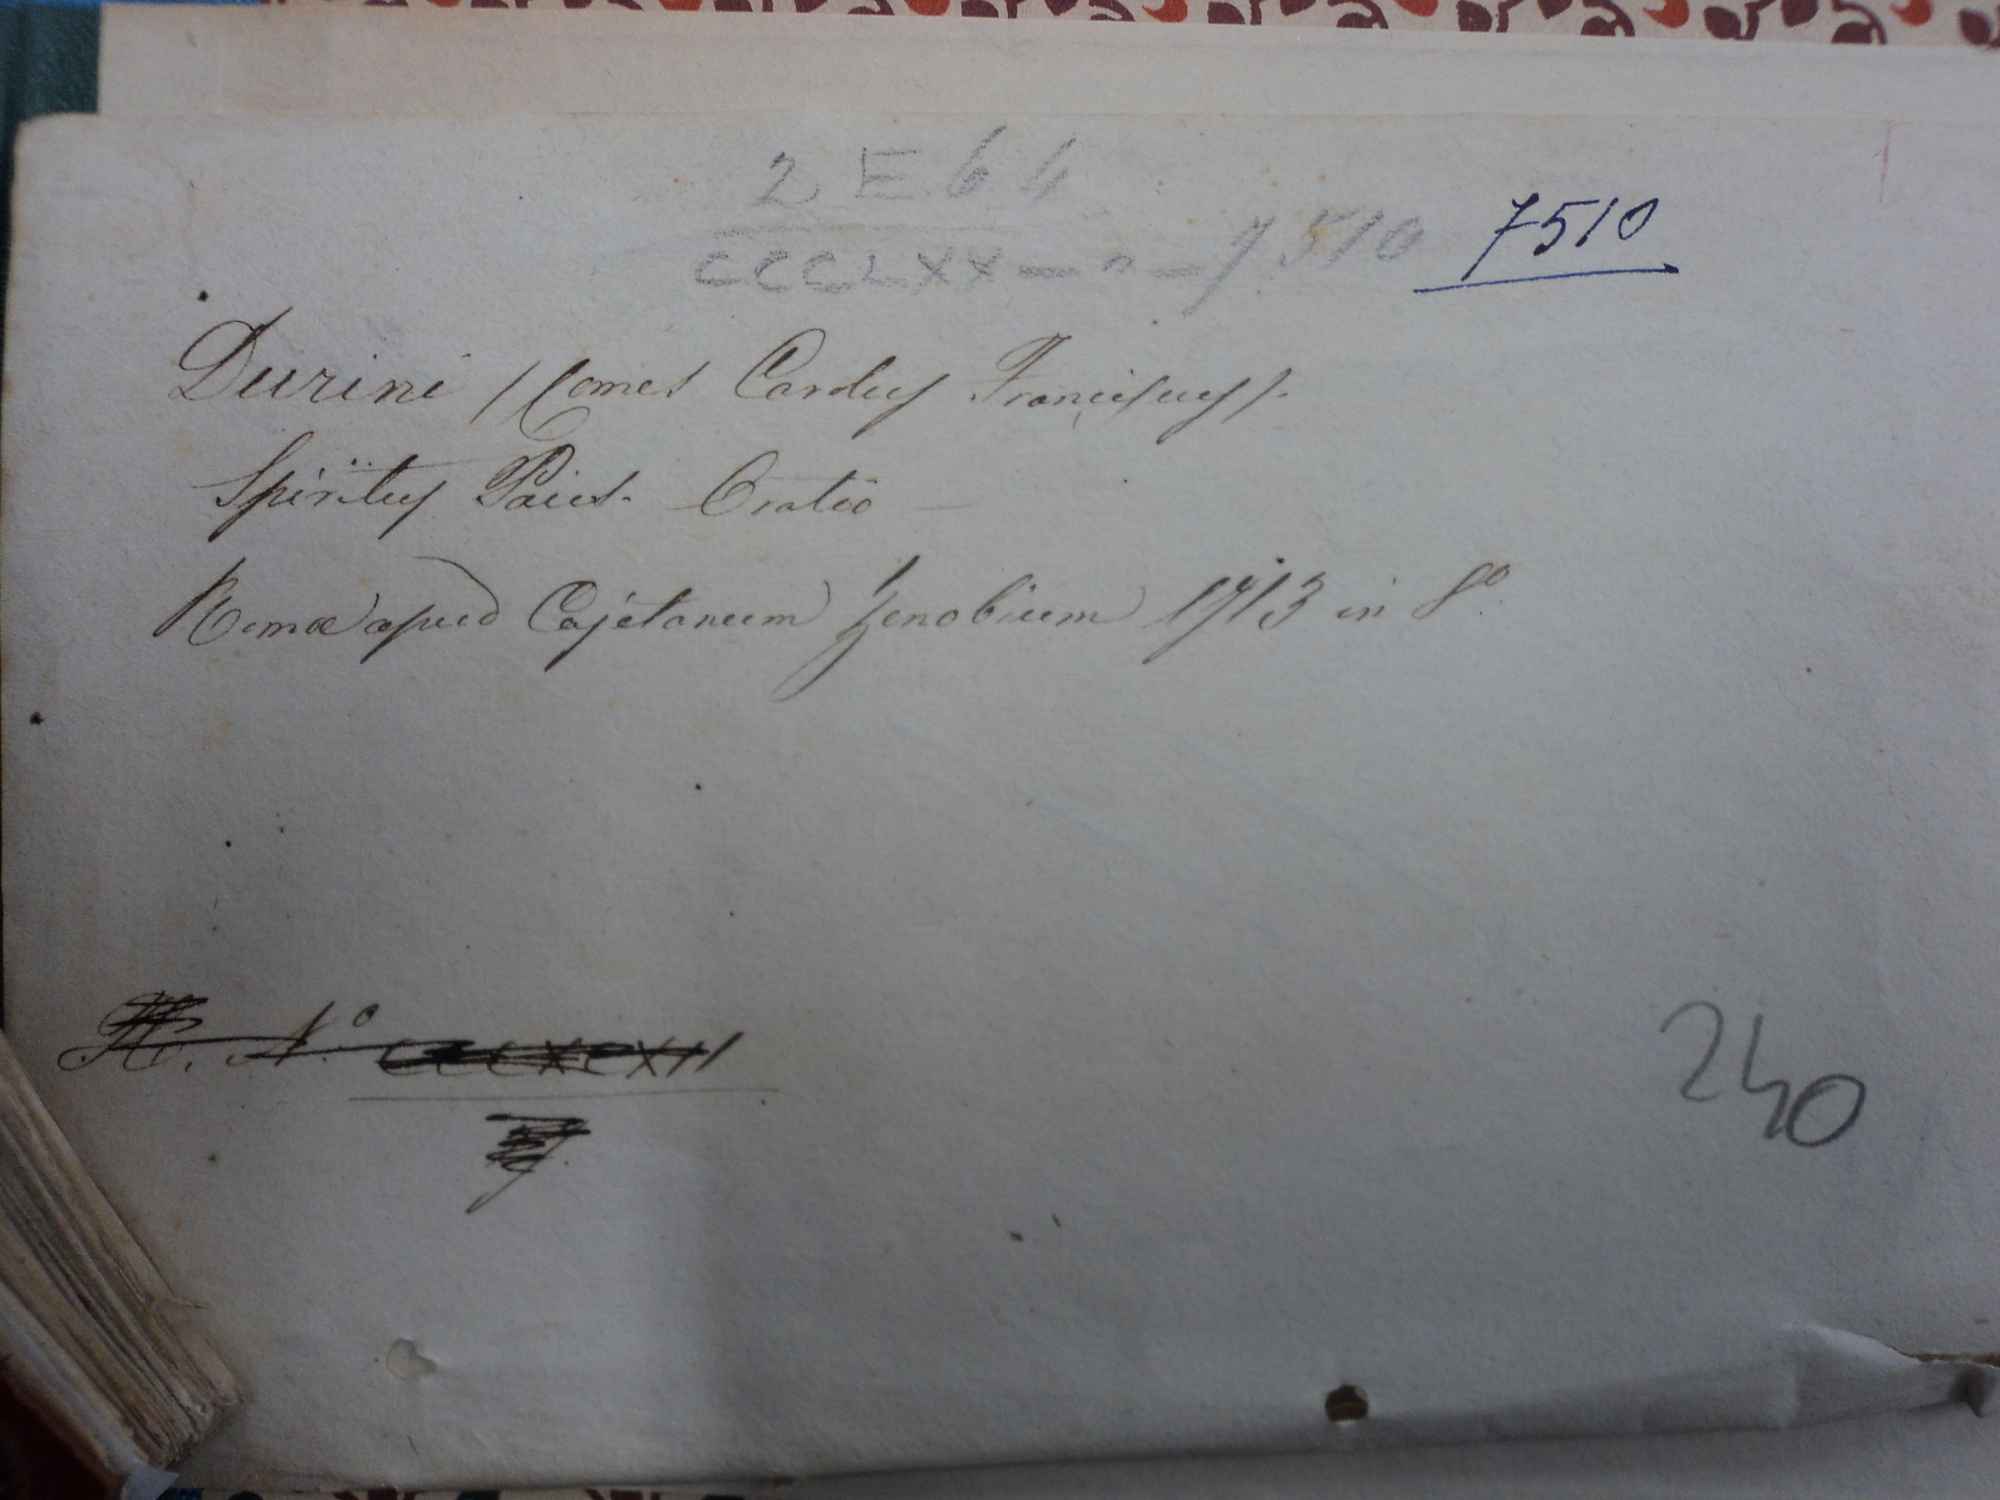 2 E 6 4
CCCLXX — n — 7510 7510
Durini / Comes Carolus Franciscus /.
Spiritus Paris. Oratio —
Romæ apud Cajetanum Zenobium 1713 in 8º
N.º
240